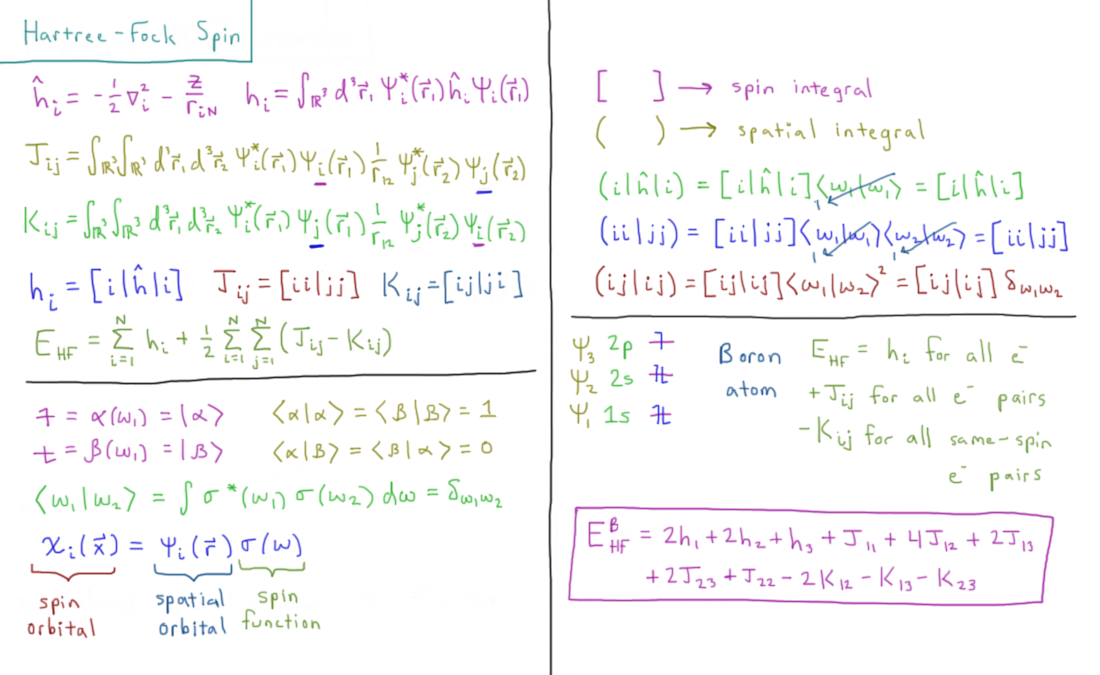 Hartree-Fock Spin
ĥᵢ = -½ ∇ᵢ² - Z/r_iN   hᵢ = ∫_ℝ³ d³r⃗₁ Ψᵢ*(r⃗₁) ĥᵢ Ψᵢ(r⃗₁)
Jᵢⱼ = ∫_ℝ³ ∫_ℝ³ d³r⃗₁ d³r⃗₂ Ψᵢ*(r⃗₁) Ψᵢ(r⃗₁) 1/r₁₂ Ψⱼ*(r⃗₂) Ψⱼ(r⃗₂)
Kᵢⱼ = ∫_ℝ³ ∫_ℝ³ d³r⃗₁ d³r⃗₂ Ψᵢ*(r⃗₁) Ψⱼ(r⃗₁) 1/r₁₂ Ψⱼ*(r⃗₂) Ψᵢ(r⃗₂)
hᵢ = [i|ĥ|i]   Jᵢⱼ = [ii|jj]   Kᵢⱼ = [ij|ji]
E_HF = Σ_{i=1}^{N} hᵢ + ½ Σ_{i=1}^{N} Σ_{j=1}^{N} (Jᵢⱼ - Kᵢⱼ)
↿ = α(ω₁) = |α⟩   ⟨α|α⟩ = ⟨β|β⟩ = 1
⇂ = β(ω₁) = |β⟩   ⟨α|β⟩ = ⟨β|α⟩ = 0
⟨ω₁|ω₂⟩ = ∫ σ*(ω₁) σ(ω₂) dω = δ_ω₁ω₂
χᵢ(x⃗) = Ψᵢ(r⃗) σ(ω)
spin orbital
spatial orbital
spin function
[ ] → spin integral
( ) → spatial integral
(i|ĥ|i) = [i|ĥ|i]⟨ω₁|ω₁⟩ = [i|ĥ|i]
1
(ii|jj) = [ii|jj]⟨ω₁|ω₁⟩⟨ω₂|ω₂⟩ = [ii|jj]
1 1
(ij|ij) = [ij|ij]⟨ω₁|ω₂⟩² = [ij|ij] δ_ω₁ω₂
Ψ₃ 2p ↿
Ψ₂ 2s ↿⇂
Ψ₁ 1s ↿⇂
Boron
atom
E_HF = hᵢ for all e⁻
+ Jᵢⱼ for all e⁻ pairs
- Kᵢⱼ for all same-spin
e⁻ pairs
E_HF^B = 2h₁ + 2h₂ + h₃ + J₁₁ + 4J₁₂ + 2J₁₃
+ 2J₂₃ + J₂₂ - 2K₁₂ - K₁₃ - K₂₃